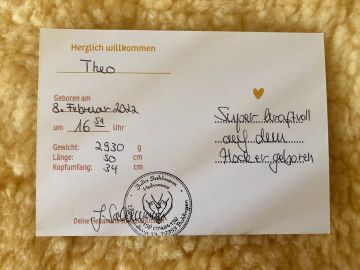 Herzlich willkommen
Theo
Geboren am
8. Februar 2022
um 16 59 Uhr
Gewicht: 2930 g
Länge: 50 cm
Kopfumfang: 34 cm
Deine Hebamme
Super kraftvoll
auf dem
Hocker geboren
Hebamme